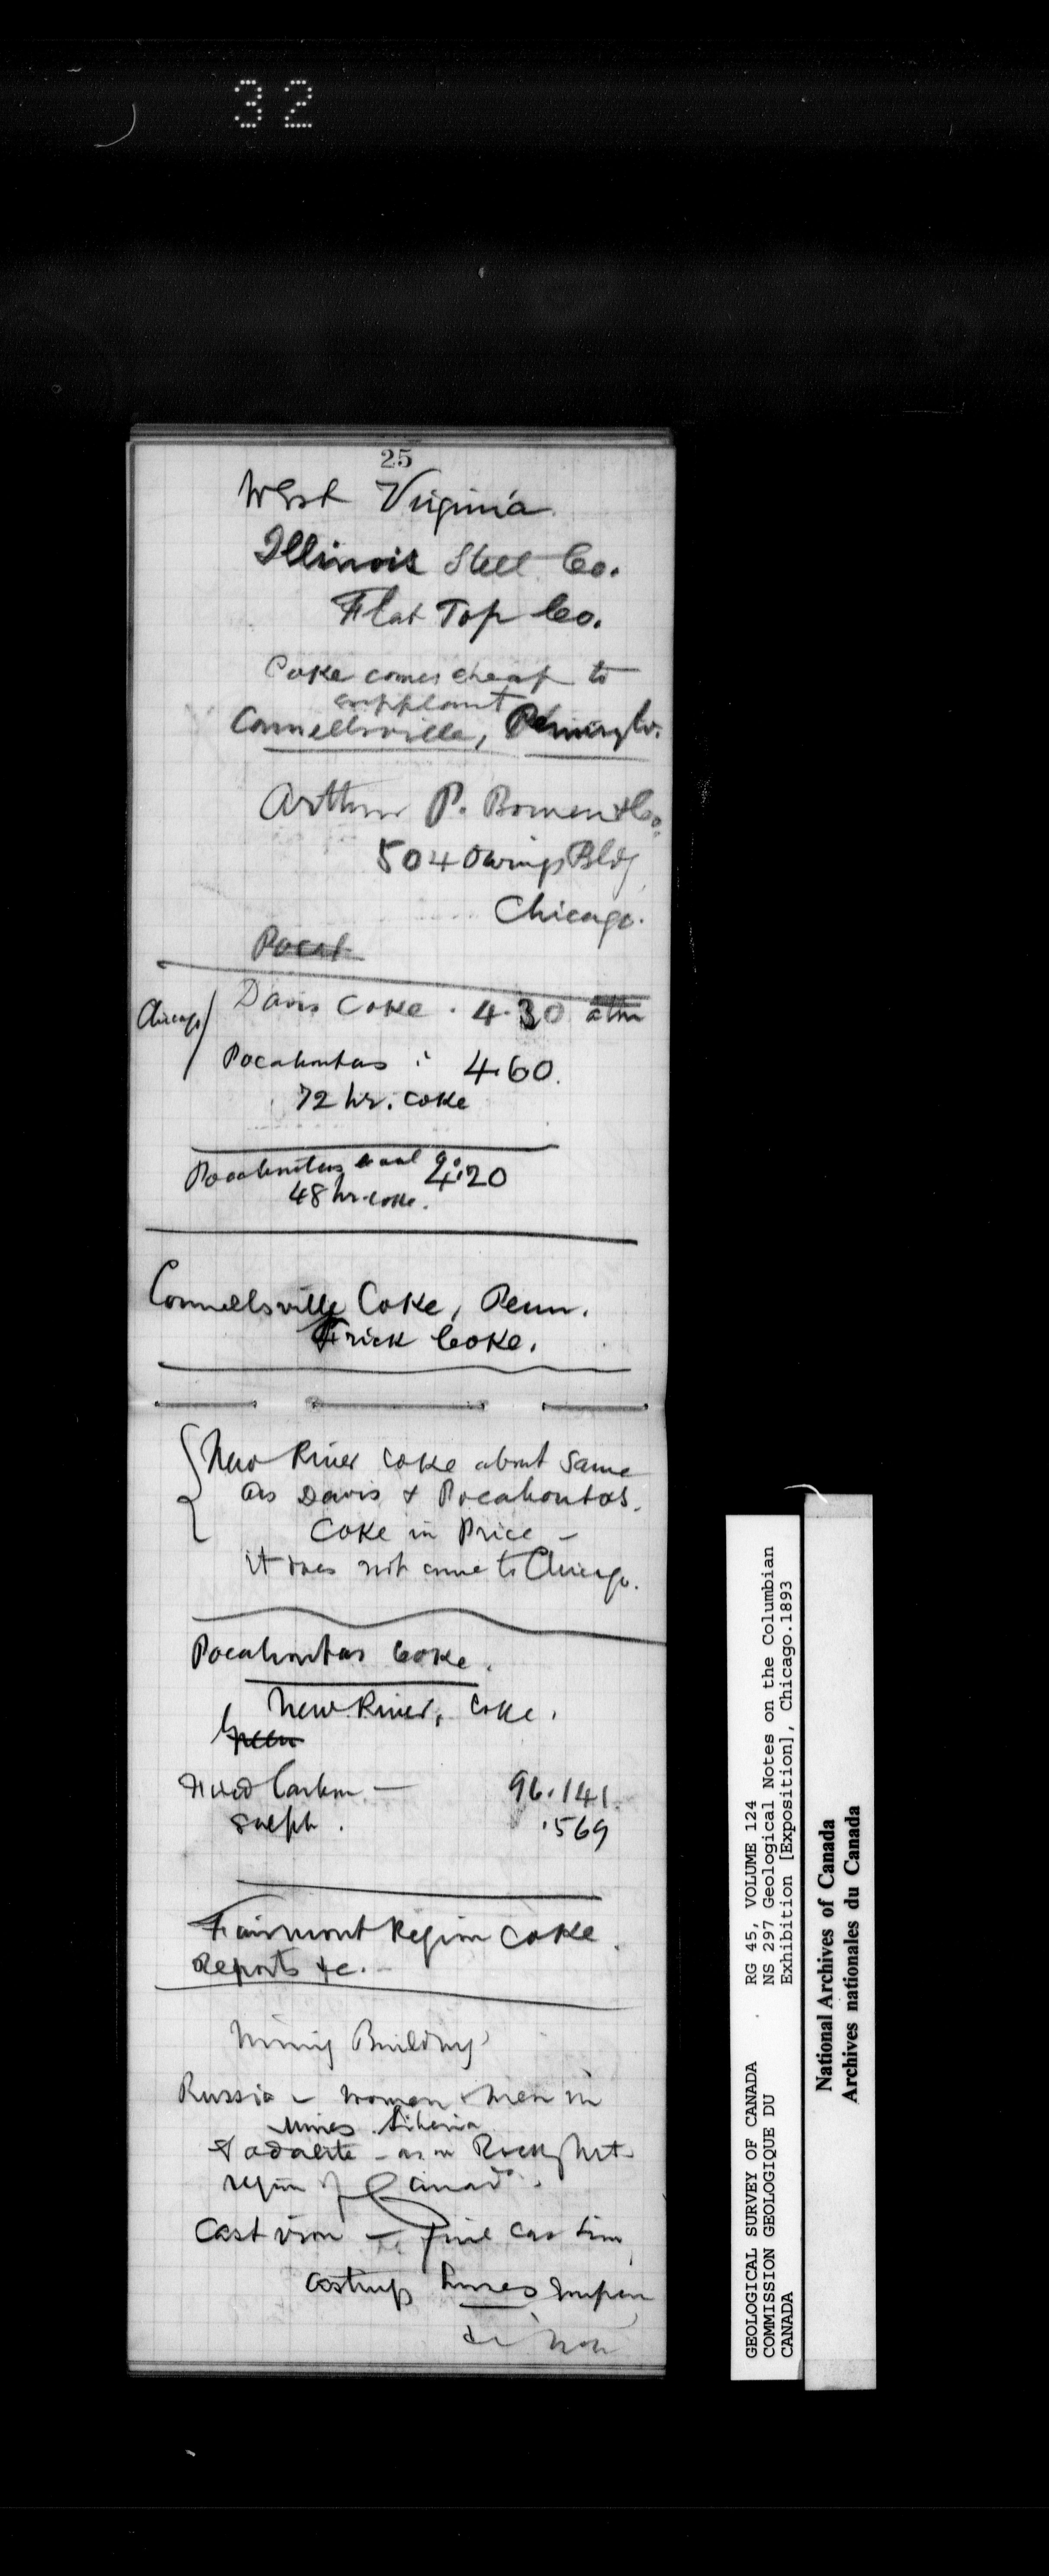 32
25
West Virginia
Illinois Steel Co.
Flat Top Co.
Coke comes cheap to
supplant
Connellsville, Pennsylv.
Arthur P. Bowen & Co.
504 Owings Bldg
Chicago.
Pocat
Davis Coke . 4.30
Chicago
Pocahontas : 4.60.
72 hr. coke
Pocahontas 4.20
48 hr. coke.
Connellsville Coke, Penn.
Frick Coke.
New River coke about same
as Davis & Pocahontas.
Coke in Price –
it does not come to Chicago.
Pocahontas Coke.
New River, Coke.
Fixed Carbon. — 96.141.
Sulph. .569
Fairmont Region Coke.
Reports &c. –
Mining Building
Russia – women & men in
Mines Siberia
Sodalite – as in Rocky Mt.
region of Canada.
Cast iron – fine
castings
GEOLOGICAL SURVEY OF CANADA RG 45, VOLUME 124
COMMISSION GEOLOGIQUE DU NS 297 Geological Notes on the Columbian
CANADA Exhibition [Exposition], Chicago.1893
National Archives of Canada
Archives nationales du Canada